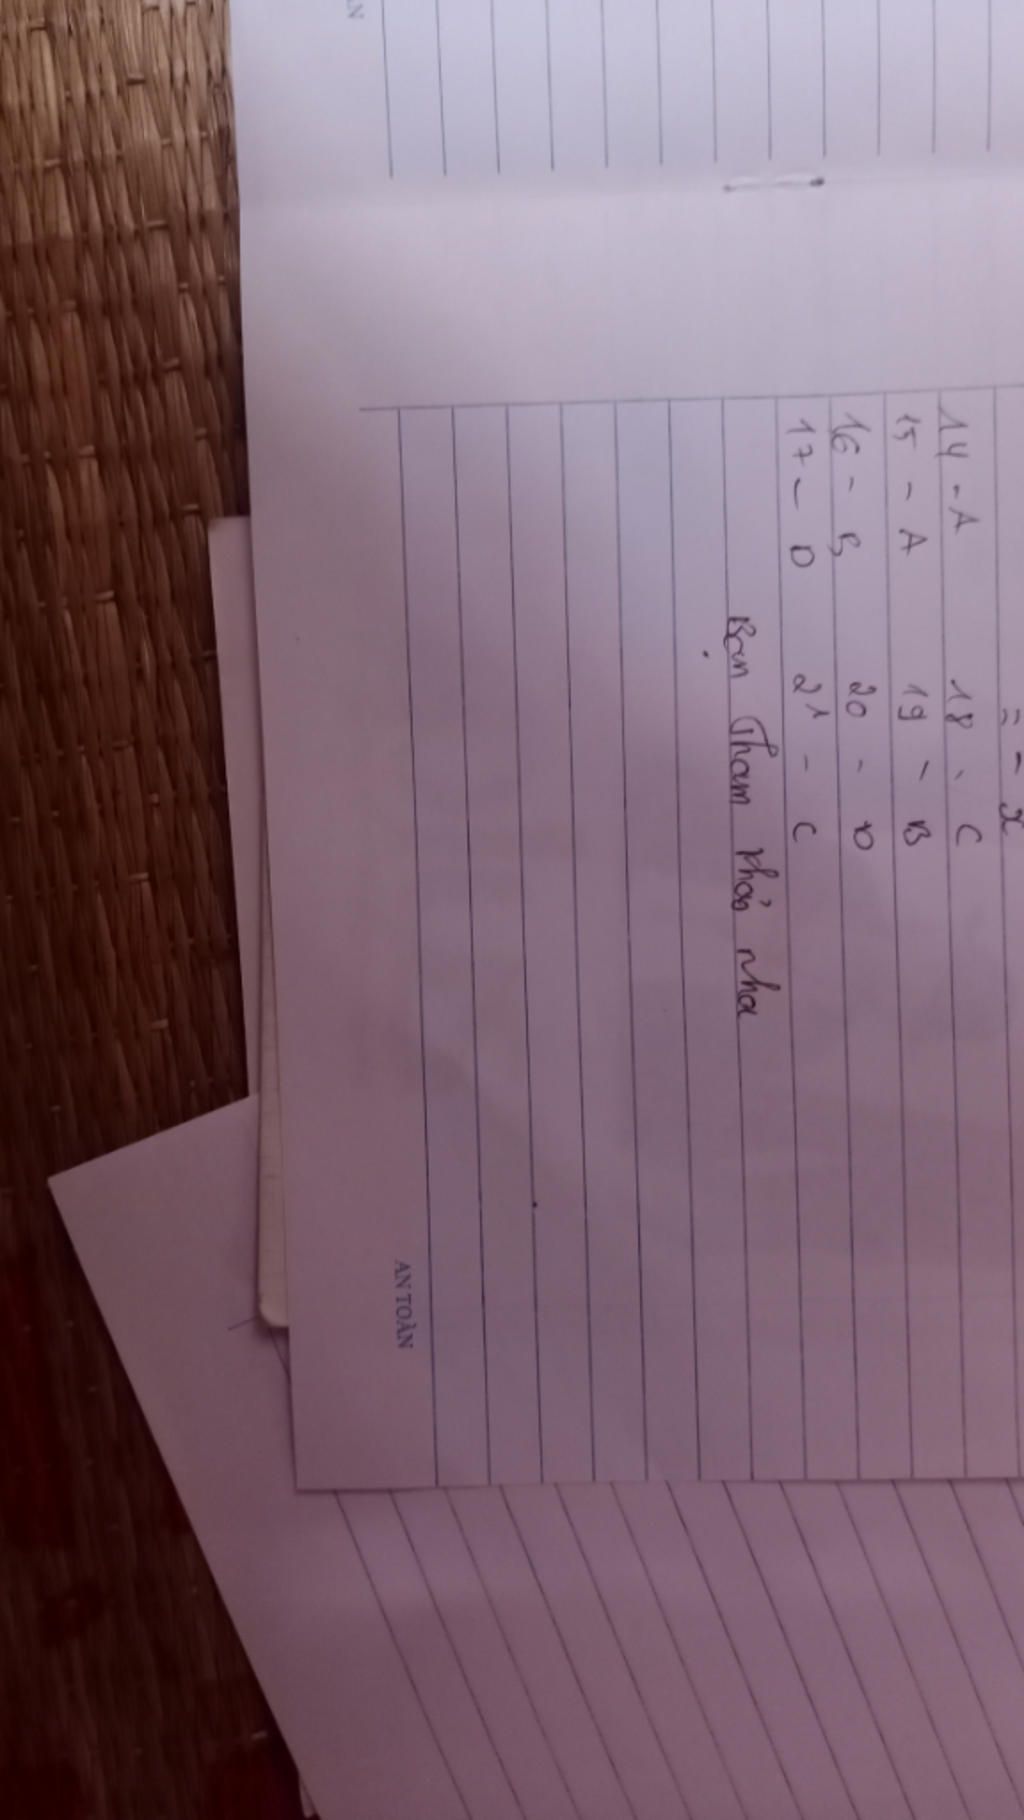 = - x
14 - A 18 - C
15 - A 19 - B
16 - B 20 - D
17 - D 21 - C
Bạn Tham khảo nha
AN TOÀN